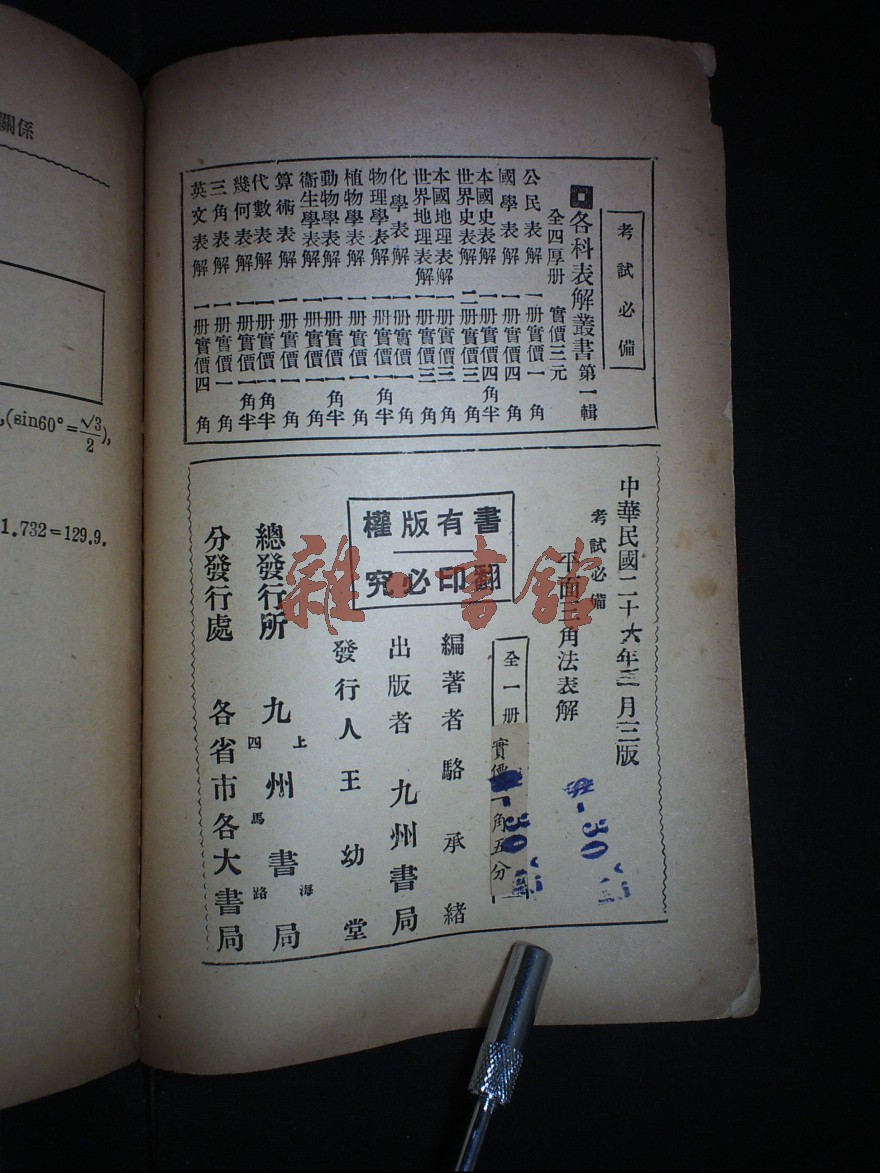 關係
(sin60°=√3/2),
1.732=129.9.
考試必備
各科表解叢書第一輯
全四厚册 實價三元
公民表解 一册實價一角
國學表解 一册實價四角
本國史表解 一册實價四角半
世界史表解 二册實價三角
本國地理表解 一册實價三角
世界地理表解 一册實價三角
化學表解 一册實價一角
物理學表解 一册實價一角半
植物學表解 一册實價一角
動物學表解 一册實價一角半
衞生學表解 一册實價一角
算術表解 一册實價一角
代數表解 一册實價一角半
幾何表解 一册實價一角半
三角表解 一册實價一角
英文表解 一册實價四角
中華民國二十六年三月三版
考試必備
平面三角法表解
全一册
實價一角五分
-30
-30
書有版權
翻印必究
編著者駱承緒
出版者九州書局
發行人王幼堂
總發行所 九州書局
上海
四馬路
分發行處 各省市各大書局
雜·書館